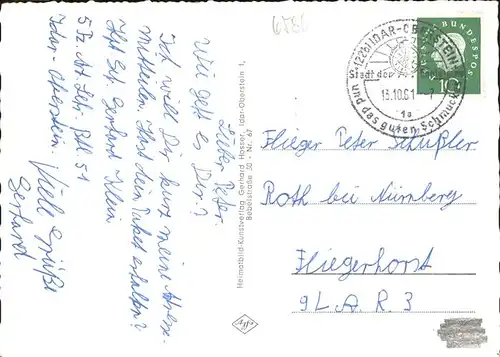 Lieber Peter
Wie geht es Dir?
Ich will Dir kurz meine Adresse
mitteilen. Hast Du mein Paket erhalten?
Gerhard Klein
5 Fz. Art. Lehr. Btl 51
Idar-Oberstein
Viele Grüße
Gerhard
Heimatbild-Kunstverlag Gerhard Hosser, Idar-Oberstein 1,
Bebelstraße 50 Nr. 67
Agfa
(22b) IDAR-OBERSTEIN
Stadt der
und des guten Schmucks
13.10.61-7
1a
DEUTSCHE BUNDESPOST
10
Flieger Peter
Roth bei Nürnberg
Fliegerhorst
9 L.A.R. 3